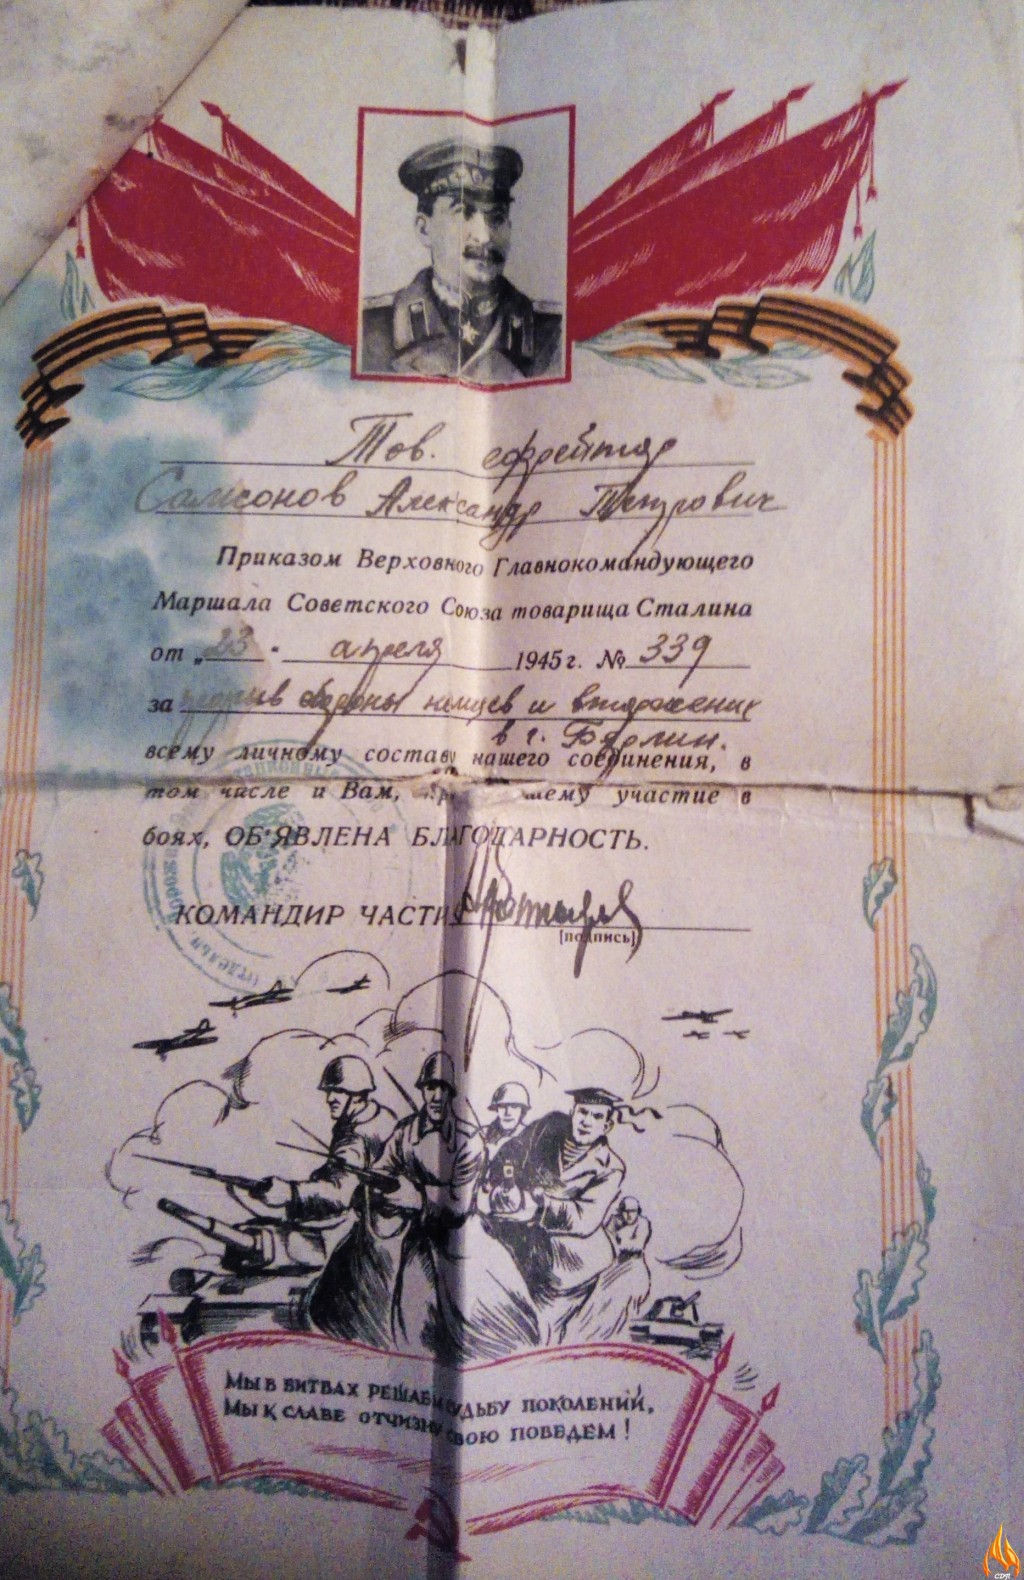 Тов. ефрейтор
Самсонов Александр Петрович
Приказом Верховного Главнокомандующего
Маршала Советского Союза товарища Сталина
от „23" апреля 1945 г. № 339
за прорыв обороны немцев и вторжение
в г. Берлин.
всему личному составу нашего соединения, в
том числе и Вам, участие в
боях, ОБ'ЯВЛЕНА БЛАГОДАРНОСТЬ.
КОМАНДИР ЧАСТИ
[подпись]
МЫ В БИТВАХ РЕШАЕМ СУДЬБУ ПОКОЛЕНИЙ,
МЫ К СЛАВЕ ОТЧИЗНУ СВОЮ ПОВЕДЕМ!
CDR